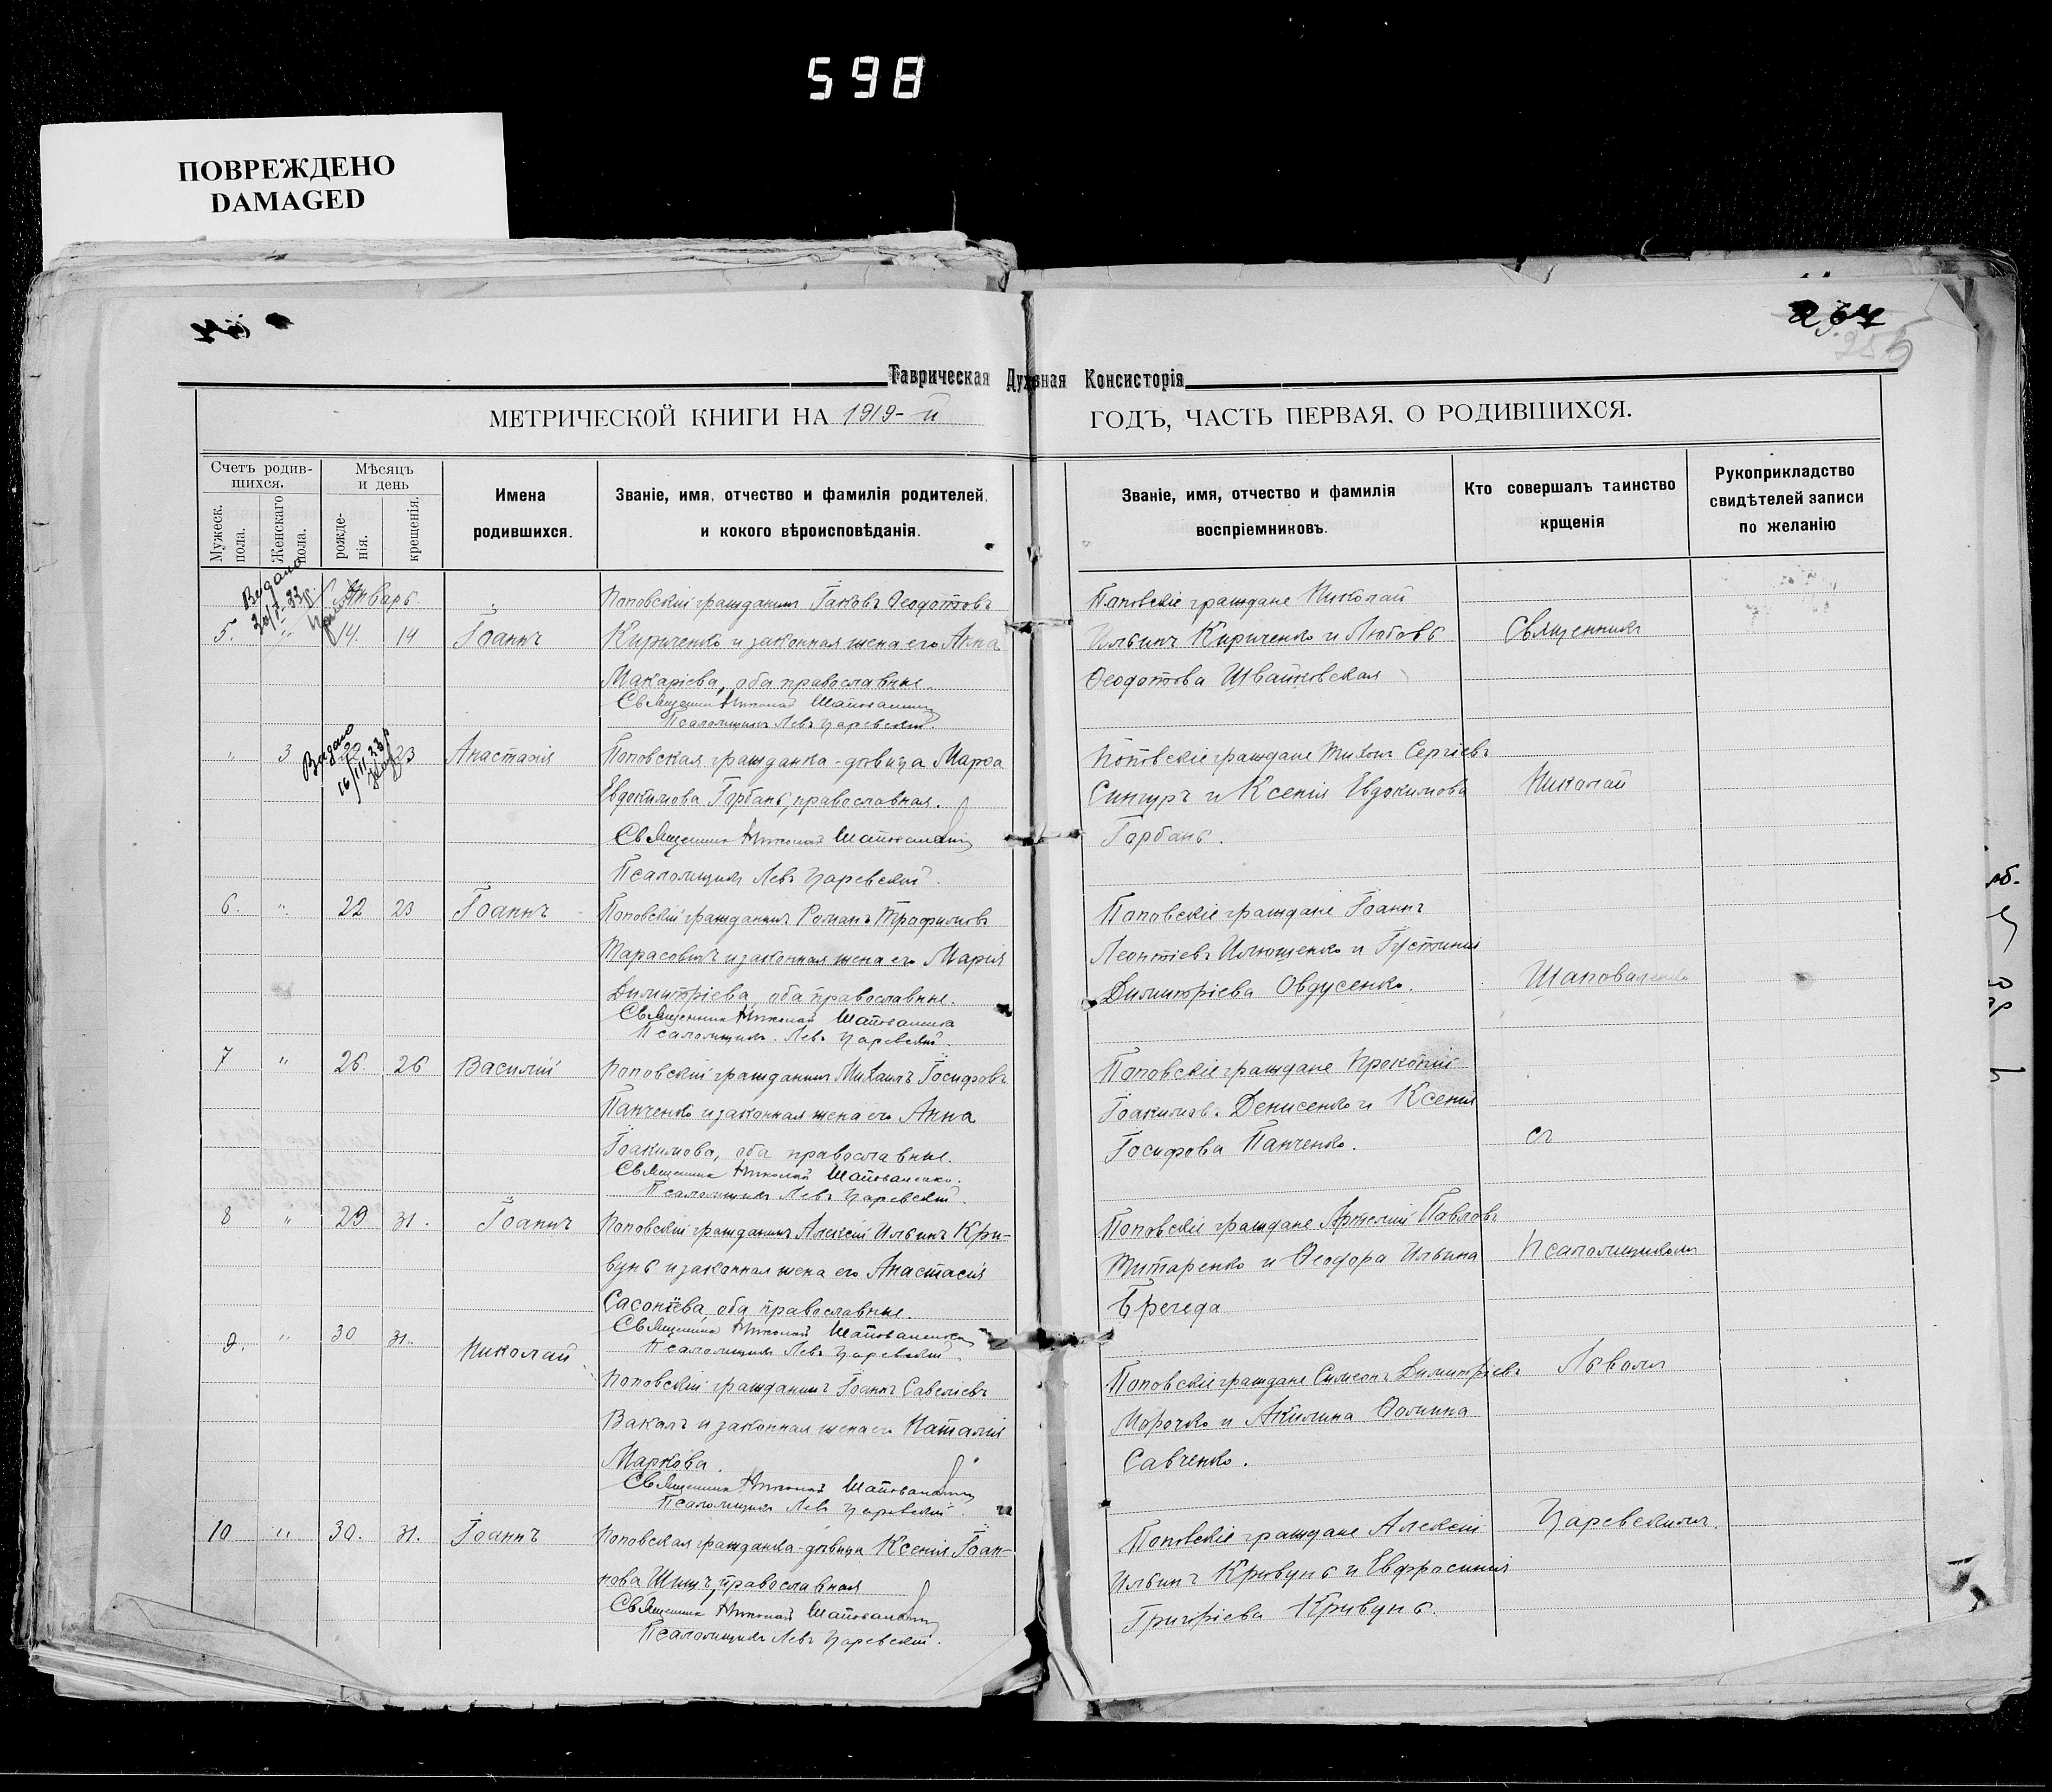 598
ПОВРЕЖДЕНО
DAMAGED
267
256
Таврическая Духвная Консисторія
МЕТРИЧЕСКОЙ КНИГИ НА 1919-й
ГОДЪ, ЧАСТЬ ПЕРВАЯ, О РОДИВШИХСЯ.
Счетъ родив-
шихся.
Мужеск. пола.
Женскаго пола.
Мѣсяцъ
и день
рожде-
нія.
крещенія.
Имена
родившихся.
Званіе, имя, отчество и фамилія родителей,
и кокого вѣроисповѣданія.
Званіе, имя, отчество и фамилія
воспріемниковъ.
Кто совершалъ таинство
крщенія
Рукоприкладство
свидѣтелей записи
по желанію
Январь.
5. " 14. 14 Іоаннъ
Поповскій гражданинъ Іаковъ Ѳеодотовъ
Кириченко и законная жена его Анна
Макаріева, оба православные.
Священникъ Николай Шаповаленко
Псаломщикъ Левъ Царевскій.
Поповскіе граждане Николай
Ильинъ Кириченко и Любовь
Ѳеодотова Швайковская
Священникъ
Выдано
16/III 33 р
" 3 22 23 Анастасія
Поповская гражданка-дѣвица Марѳа
Евдокимова Горбань, православная.
Священникъ Николай Шаповаленко
Псаломщикъ Левъ Царевскій.
Поповскіе граждане Тихонъ Сергіевъ
Сингуръ и Ксенія Евдокимова
Горбань.
Николай
6. " 22 23 Іоаннъ
Поповскій гражданинъ Романъ Трофимовъ
Тарасовичъ и законная жена его Марія
Димитріева, оба православные.
Священникъ Николай Шаповаленко
Псаломщикъ Левъ Царевскій.
Поповскіе граждане Іоаннъ
Леонтіевъ Илющенко и Іустинія
Димитріева Овдусенко.
Шаповаленко
7 " 26. 26 Василій
Поповскій гражданинъ Михаилъ Іосифовъ
Панченко и законная жена его Анна
Іоакимова, оба православные.
Священникъ Николай Шаповаленко.
Псаломщикъ Левъ Царевскій.
Поповскіе граждане Прокопій
Іоакимов. Денисенко и Ксенія
Іосифова Панченко.
съ
8 " 29 31. Іоаннъ
Поповскій гражданинъ Алексій Ильинъ Кри-
вунь и законная жена его Анастасія
Сасонтева, оба православные.
Священникъ Николай Шаповаленко
Псаломщикъ Левъ Царевскій.
Поповскіе граждане Артемій Павловъ
Титаренко и Ѳеодора Ильина
Брегеда
Псаломщикомъ
9. " 30 31. Николай
Поповскій гражданинъ Іоаннъ Савеліевъ
Вакалъ и законная жена его Наталія
Маркова.
Священникъ Николай Шаповаленко
Псаломщикъ Левъ Царевскій.
Поповскіе граждане Симеонъ Димитріевъ
Морочко и Акилина Ѳомина
Савченко.
Львомъ
10 " 30. 31. Іоаннъ
Поповская гражданка-дѣвица Ксенія Іоан-
нова Шишъ, православная
Священникъ Николай Шаповаленко
Псаломщикъ Левъ Царевскій.
Поповскіе граждане Алексій
Ильинъ Кривунь и Евфросинія
Григоріева Кривунь.
Царевскимъ.